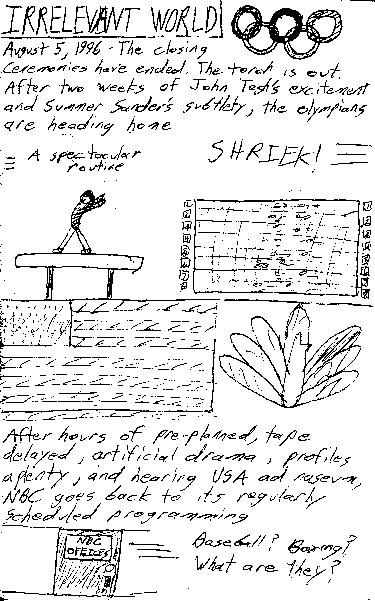 IRRELEVANT WORLD
August 5, 1996 - The closing
Ceremonies have ended. The torch is out.
After two weeks of John Tesh's excitement
and Summer Sander's subtlety, the olympians
are heading home
A spectacular
routine
SHRIEK!
After hours of pre-planned, tape
delayed, artificial drama, profiles
aplenty, and hearing USA ad naseum,
NBC goes back to its regularly
scheduled programming
NBC
OFFICES
Baseball? Boxing?
What are they?